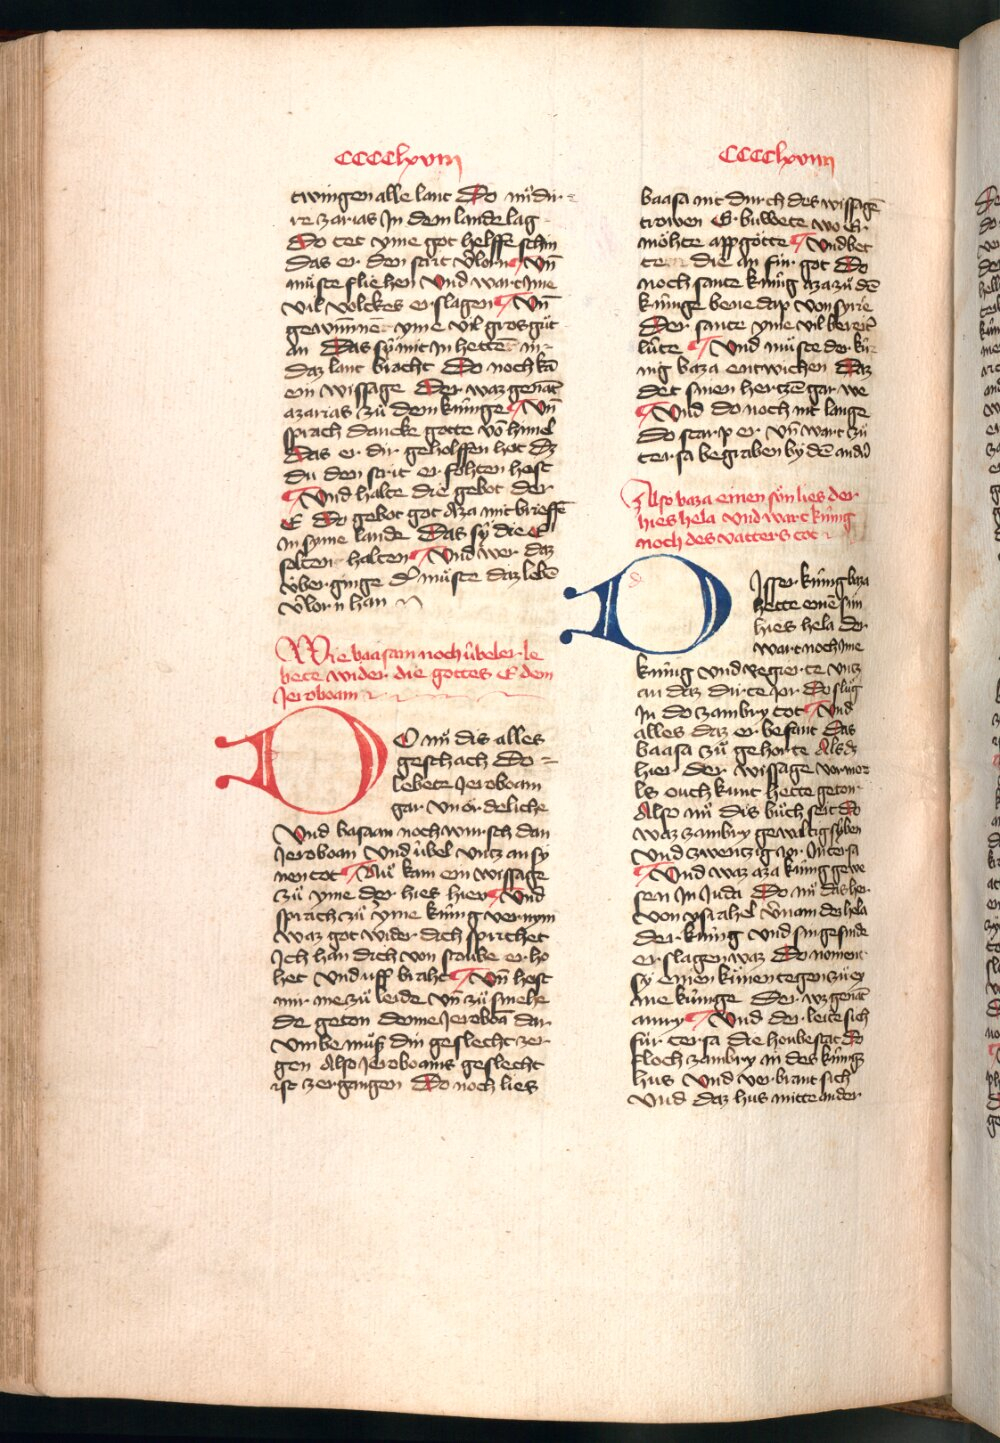 CCCClxviij
twingen alle lant Do nuͦ dir
re zarias In dem lande lag
Do tet yme got helffe schin
das er den strit v̾lorn Vn̄
muͤste fliehen Vnd wart Ime
vil volckes erslagen Vn̄
gewūnnē yme vil gros guͦt
an Das sy̆ mit In hettē in
daz lant bracht Do noch kā
ein wissage Der waz genāt
azarias zuͦ dem kuͤnige Vn̄
sprach dancke gotte vō himel
Das er dir geholffen het Dz
du den strit er fohten hest
Vnd halte die gebot der
E Do gebot got Aza mit brieffē
In syme lande Das sy̆ die E
solten halten Vnd wer daz
v́ber ginge D̾ muͤste daz lebē
v̾lorn han
Wie baasam noch úbeler le
bete wider die gottes E dem
Jeroboam
DO nuͦ dis alles
geschach do
lebete Jeroboam
gar vnordeliche
Vnd basaan noch wursch dan
Jeroboan Vnd úbel vntz an sy
nen tot Nuͦ kam ein wissage
zuͦ yme der hies hieu Vnd
sprach zuͦ yme kúnig vernym
waz got wider dich sprichet
Ich han dich von stoube erho
het Vnd uff braht Vn̄ hest
mir me zuͦ leide vn̄ zuͦ smehe
de geton denne Jeroboā dar
vmbe muͦß din geslecht zer
gen Also Jeroboams geslecht
ist zergangen Do noch lies
CCCClxviiij
baasa nit durch des wissagē
trowen Er buwete wo Er
möhte appgötte Vnd bet
te die an für got Do
noch sante kúnig aza zuͦ dē
kúnige benedap von syrie
Der sante yme vil bereit̾
lúte Vnd muͤste der kú
nig baza entwichen Daz
det sinen hertzē gar we
Vnd do noch nit lange
Do starp er vn̄ wart zuͦ
tersa begraben by dē and̾n
Also baza einen sun lies der
hies hela Vnd wart kúnig
noch des vatters tot
DIsser kúnig baza
hette einē sun
hies hela der
wart noch Ime
kúnig vnd regierte vntz
an daz dirte Jor Do sluͦg
In do zambry tot Vnd
alles daz er befant Das
baasa zuͦ gehorte Als dz
hieu der wissage vormo
ls ouch kunt hette geton
Also nuͦ dis buͦch seit do
waz zambry gewaltig syben
Vnd zwentzig Jor In tersa
Vnd waz aza kúnig gewe
sen In Juda Do nuͦ das her
von ysrahel v̾nam daz hela
der kúnig Vnd sin gesinde
erslagen waz Do noment
sy einen kuͤnen tegen zuͦ ey
me kúnige Der wz genāt
amry Vnd der leite sich
fúr tersa die houbestat do
floch zambry in des kúnigs
hus Vnd verbrant sich
Vnd daz hus mitte ander